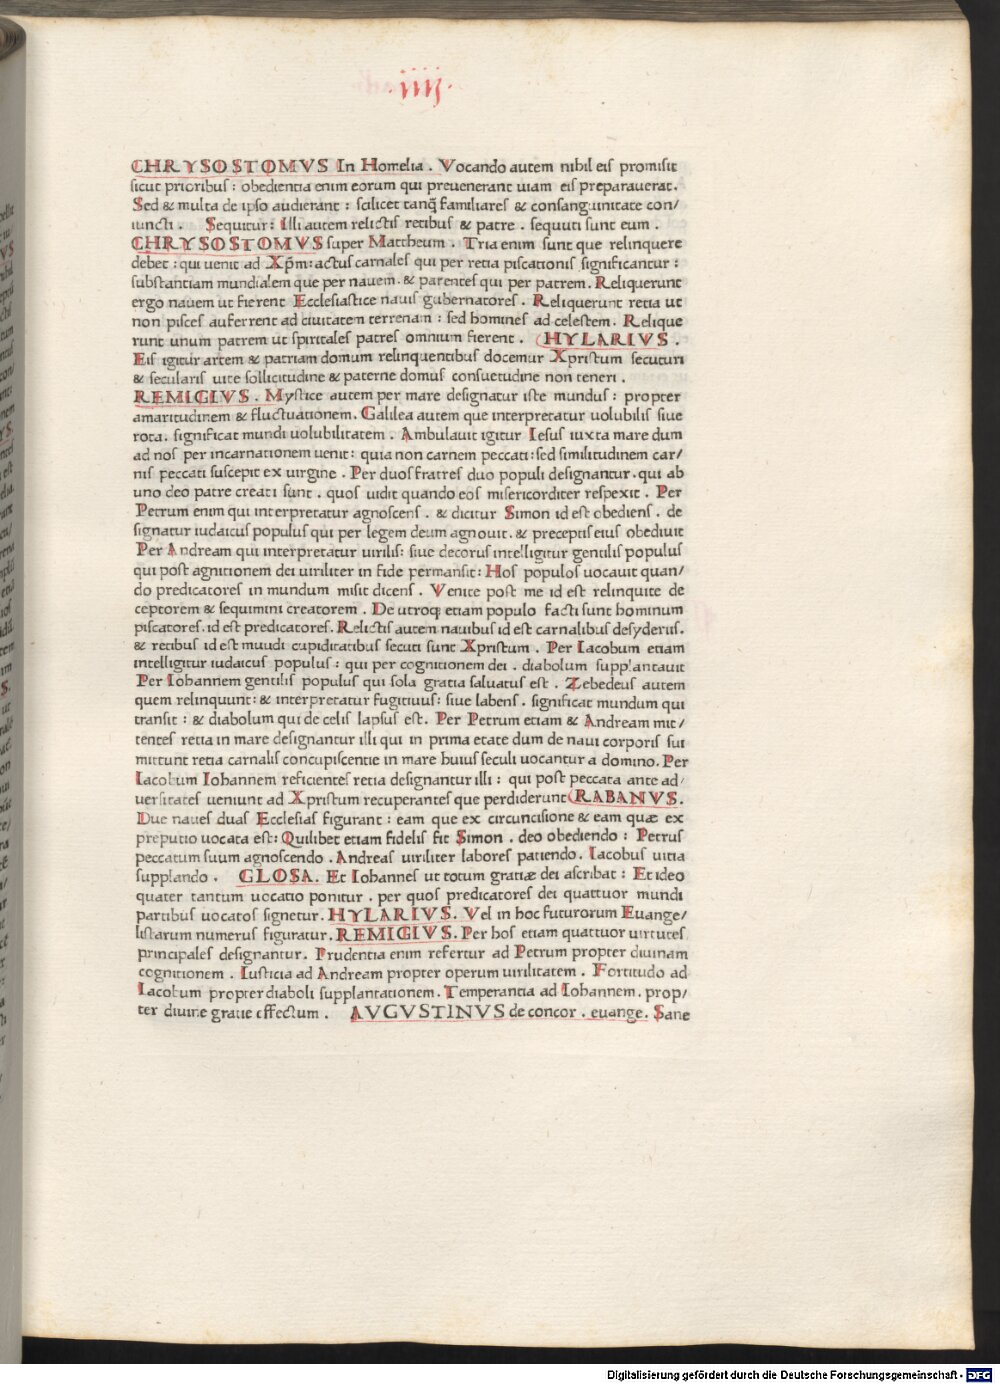 .iiij.
CHRYSOSTOMVS In Homelia . Vocando autem nibil eis promisit
sicut prioribus : obedientia enim eorum qui preuenerant uiam eis preparauerat.
Sed & multa de ipso audierant : scilicet tanq̃ familiares & consanguinitate con/
iuncti . Sequitur : Illi autem relictis retibus & patre . sequuti sunt eum .
CHRYSOSTOMVS super Mattheum . Tria enim sunt que relinquere
debet : qui uenit ad Xp̃m: actus carnales qui per retia piscationis significantur :
substantiam mundialem que per nauem . & parentes qui per patrem . Reliquerunt
ergo nauem ut fierent Ecclesiastice nauis gubernatores . Reliquerunt retia ut
non pisces auferrent ad ciuitatem terrenam : sed homines ad celestem . Relique
runt unum patrem ut spiritales patres omnium fierent . HYLARIVS .
Eis igitur artem & patriam domum relinquentibus docemur Xpristum secuturi
& secularis uite sollicitudine & paterne domus consuetudine non teneri .
REMIGIVS . Mystice autem per mare designatur iste mundus : propter
amaritudinem & fluctuationem . Galilea autem que interpretatur uolubilis siue
rota . significat mundi uolubilitatem . Ambulauit igitur Iesus iuxta mare dum
ad nos per incarnationem uenit : quia non carnem peccati : sed similitudinem car/
nis peccati suscepit ex uirgine . Per duos fratres duo populi designantur . qui ab
uno deo patre creati sunt . quos uidit quando eos misericorditer respexit . Per
Petrum enim qui interpretatur agnoscens . & dicitur Simon id est obediens . de
signatur iudaicus populus qui per legem deum agnouit . & preceptis eius obediuit
Per Andream qui interpretatur uirilis : siue decorus intelligitur gentilis populus
qui post agnitionem dei uiriliter in fide permansit : Hos populos uocauit quan/
do predicatores in mundum misit dicens . Venite post me id est relinquite de
ceptorem & sequimini creatorem . De utroq; etiam populo facti sunt hominum
piscatores . id est predicatores . Relictis autem nauibus id est carnalibus desyderiis .
& retibus id est muudi cupiditatibus secuti sunt Xpristum . Per Iacobum etiam
intelligitur iudaicus populus : qui per cognitionem dei . diabolum supplantauit
Per Iohannem gentilis populus qui sola gratia saluatus est . Zebedeus autem
quem relinquunt : & interpretatur fugitiuus : siue labens . significat mundum qui
transit : & diabolum qui de celis lapsus est . Per Petrum etiam & Andream mit/
tentes retia in mare designantur illi qui in prima etate dum de naui corporis sui
mittunt retia carnalis concupiscentie in mare huius seculi uocantur a domino . Per
Iacobum Iohannem reficientes retia designantur illi : qui post peccata ante ad/
uersitates ueniunt ad Xpristum recuperantes que perdiderunt RABANVS .
Due naues duas Ecclesias figurant : eam que ex circuncisione & eam quæ ex
preputio uocata est : Quilibet etiam fidelis fit Simon . deo obediendo : Petrus
peccatum suum agnoscendo . Andreas uiriliter labores patiendo . Iacobus uitia
supplando . GLOSA . Et Iohannes ut totum gratiæ dei ascribat : Et ideo
quater tantum uocatio ponitur . per quos predicatores dei quattuor mundi
partibus uocatos signetur . HYLARIVS . Vel in hoc futurorum Euange/
listarum numerus figuratur . REMIGIVS . Per hos etiam quattuor uirtutes
principales designantur . Prudentia enim refertur ad Petrum propter diuinam
cognitionem . Iusticia ad Andream propter operum uirilitatem . Fortitudo ad
Iacobum propter diaboli supplantationem . Temperantia ad Iohannem . prop/
ter diuine gratie effectum . AVGVSTINVS de concor . euange . Sane
Digitalisierung gefördert durch die Deutsche Forschungsgemeinschaft - DFG